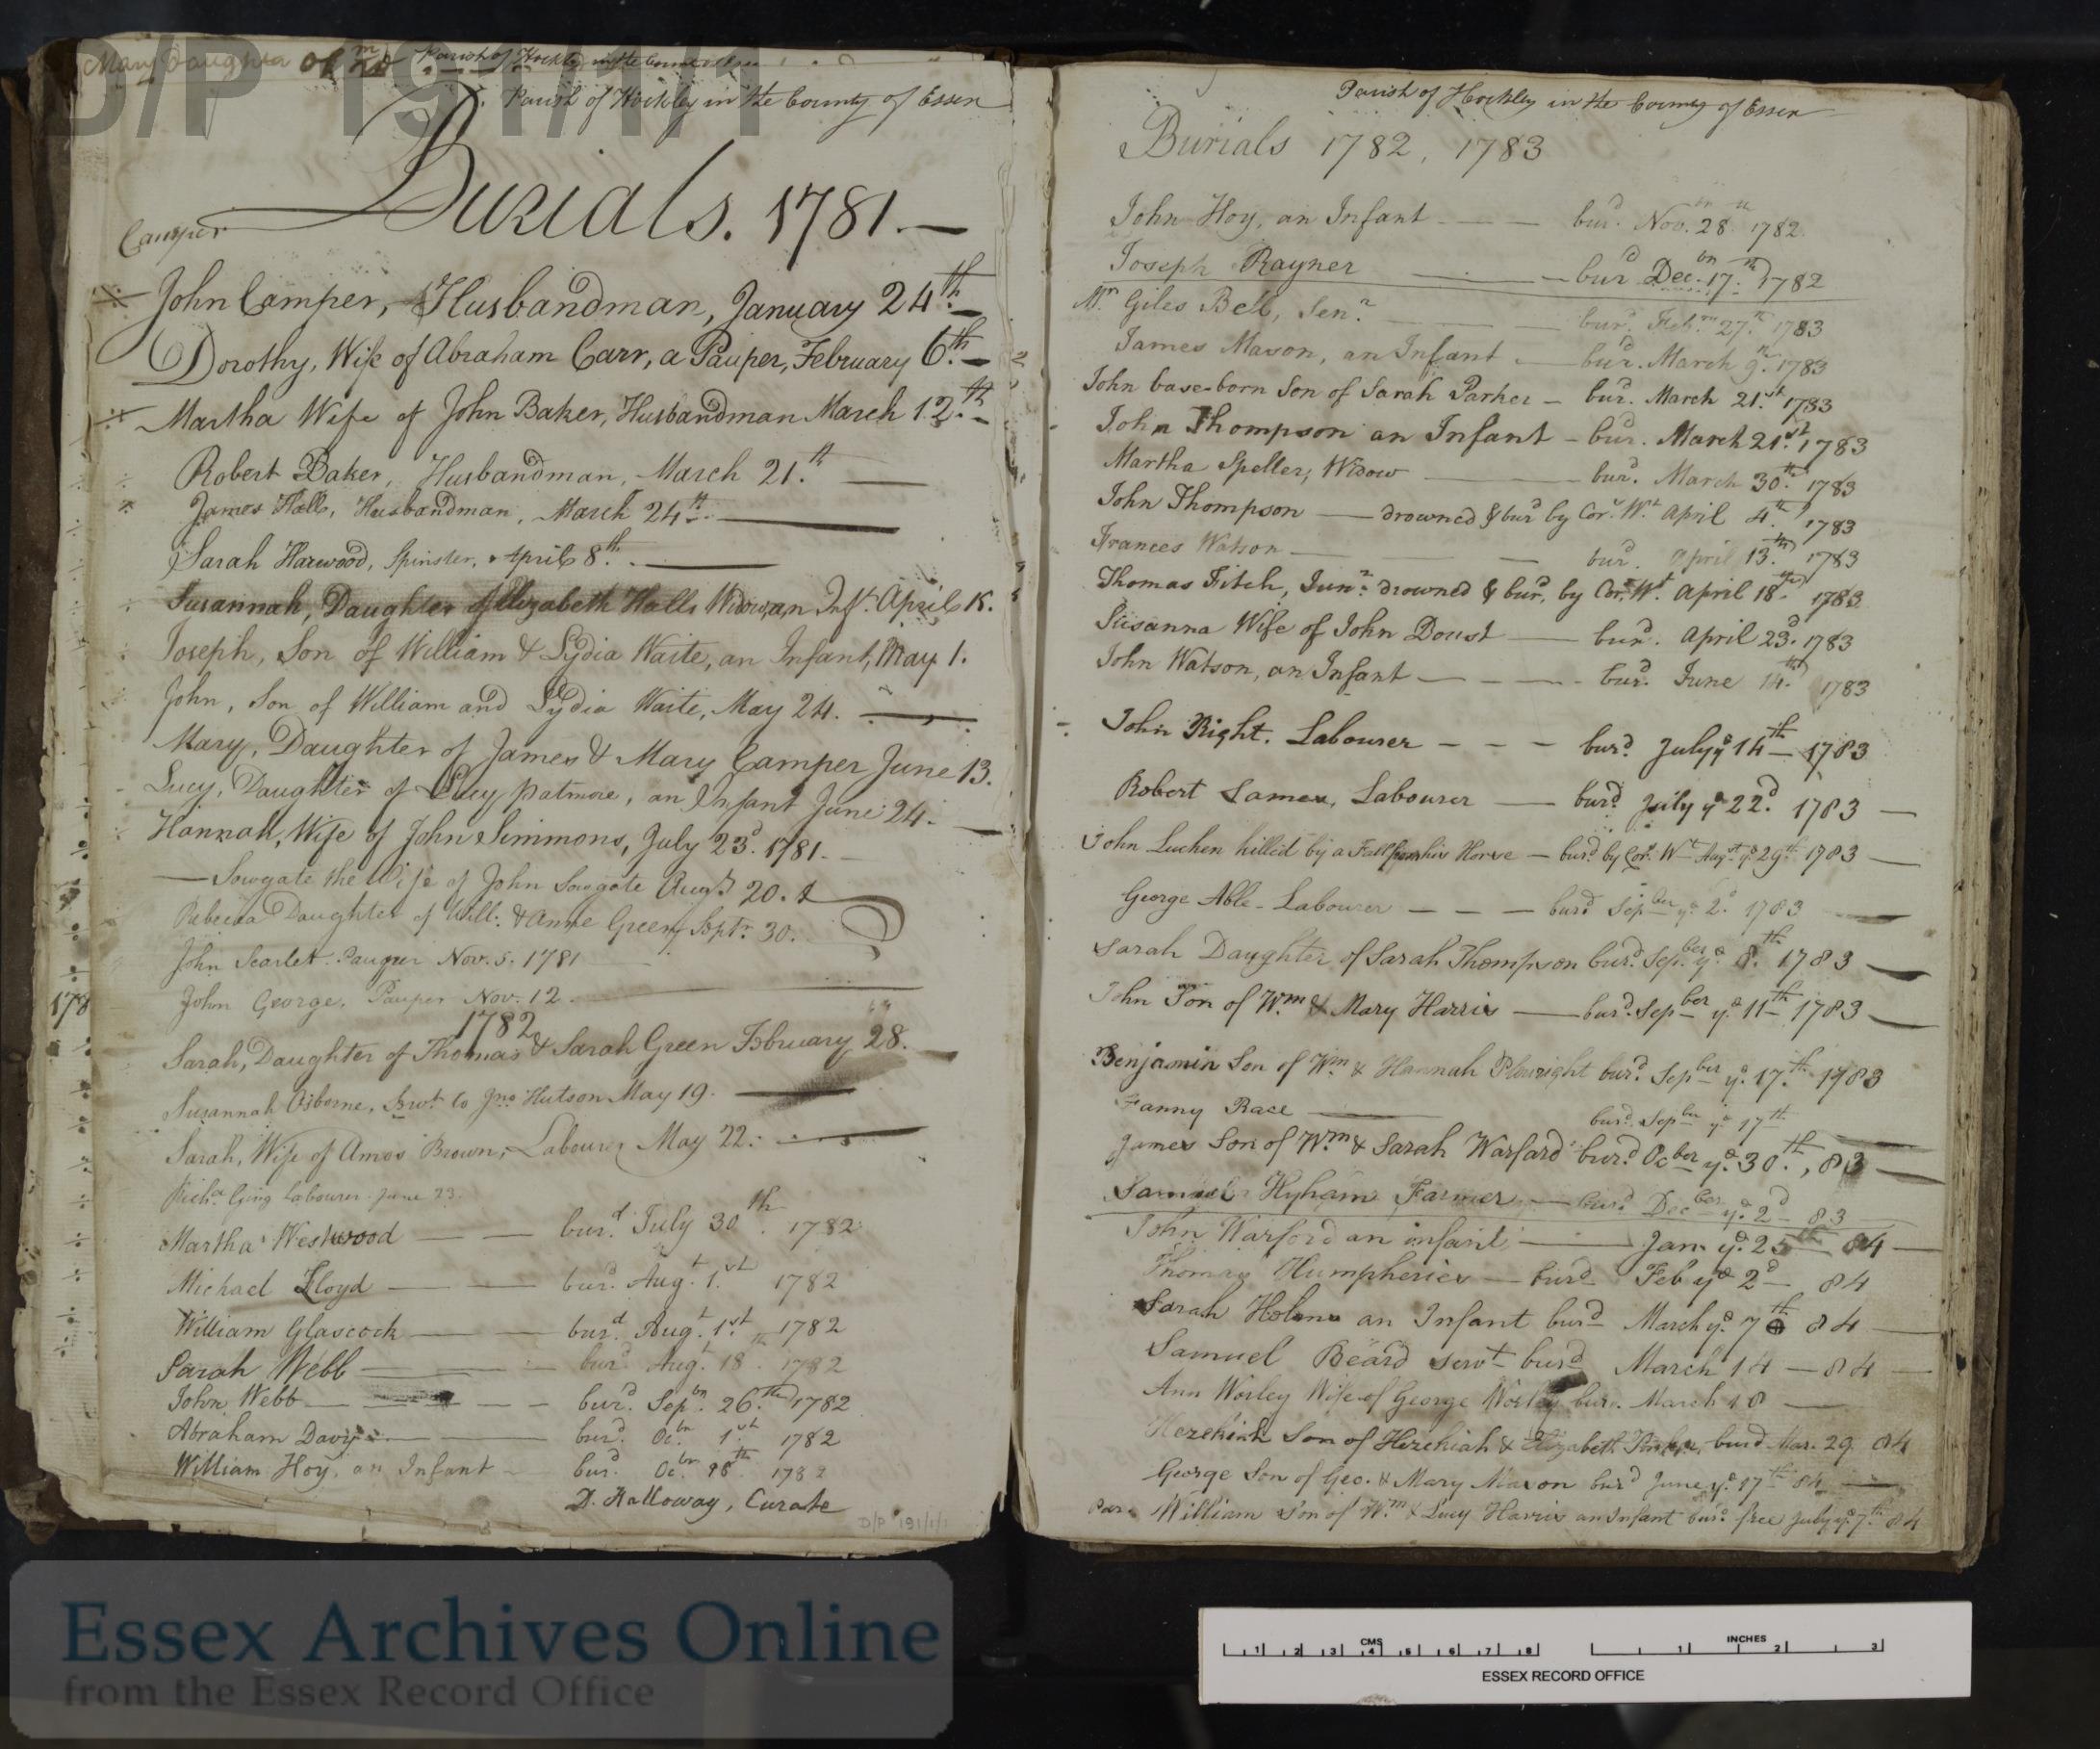 D/P 191/1/1
Mary Daughter of
Parish of Hockley in the County of Essex
Parish of Hockley in the County of Essex
Burials. 1781.
Camper
John Camper, Husbandman, January 24th.
Dorothy, Wife of Abraham Carr, a Pauper, February 6th.
Martha Wife of John Baker, Husbandman March 12th.
Robert Baker, Husbandman, March 21.th
James Hall, Husbandman, March 24th.
Sarah Harwood, Spinster, April 8.th
Susannah, Daughter of Elizabeth Halls Widow, an Inft. April 15.
Joseph, Son of William & Lydia Waite, an Infant, May 1.
John, Son of William and Lydia Waite, May 24.
Mary, Daughter of James & Mary Camper June 13.
Lucy, Daughter of Lucy Patmore, an Infant June 24.
Hannah, Wife of John Simmons, July 23d. 1781.
— Sowgate the Wife of John Sowgate Augst 20.
Rebecca Daughter of Will: & Anne Green Septr. 30.
John Scarlet. Pauper Nov. 5. 1781
John George. Pauper Nov. 12.
178
1782
Sarah, Daughter of Thomas & Sarah Green February 28.
Susannah Osborne, Servt. to Jno Hutson May 19.
Sarah, Wife of Amos Brown, Labourer May 22.
Richd. Labourer June 23.
Martha Westwood — — burd. July 30th. 1782
Michael Lloyd — — burd. Augt. 1.st 1782
William Glascock — — burd. Augt. 1st. 1782
Sarah Webb — — burd. Augt. 18th. 1782
John Webb — — — burd. Sepbr. 26.th 1782
Abraham Davys — — burd. Ocbr. 1st. 1782
William Hoy, an Infant — burd. Ocbr. 18th. 1782
D. Halloway, Curate
D/P 191/1/1
Parish of Hockley in the County of Essex
Burials 1782, 1783
John Hoy, an Infant — — burd. Nov. 28 1782
Joseph Rayner — — burd Decbr. 17.th 1782
Mr. Giles Bell, Senr. — — burd. Feb. 27.th 1783
James Mason, an Infant — burd. March 9.th 1783
John base-born Son of Sarah Parker — burd. March 21.st 1783
John Thompson an Infant — burd. March 21st. 1783
Martha Speller, Widow — burd. March 30.th 1783
John Thompson — drowned & burd by Corr. Wt. April 4.th 1783
Frances Watson — — burd. April 13.th 1783
Thomas Fitch, Junr. drowned & burd. by Cor. Wt. April 18.th 1783
Susanna Wife of John Doust — burd. April 23.d 1783
John Watson, an Infant — — — burd. June 14.th 1783
John Right. Labourer — — — burd. July ye 14th 1783
Robert Labourer — burd. July ye 22.d 1783 —
John Luchen killed by a Fall from his Horse — burd. by Cor. Wt Augst ye 29th 1783 —
George Able — Labourer — — — burd Sepber ye 2d 1783
Sarah Daughter of Sarah Thompson burd. Sepber. ye 8.th 1783
John Son of Wm & Mary Harris — burd. Sepber ye 11th 1783
Benjamin Son of Wm. & Hannah burd. Sepber ye 17.th 1783
Fanny Race — burd. Sepber ye 17th
James Son of Wm & Sarah Warford burd. Ocber ye 30th., 83
Samuel Hyham Farmer — burd. Decber ye. 2d 83
John Warford an infant — Jan. ye 25 84 —
Thomas Humpheries — burd Feb ye 2d 84
Sarah Holme an Infant burd March ye 7th 84 —
Samuel Beard servt burd March 14 — 84 —
Ann Worley Wife of George Worley bur. March 18 —
Hezekiah Son of Hezekiah & Elizabeth burd Mar. 29. 84
George Son of Geo. & Mary Mason burd June ye. 17th 84 —
Par. William Son of Wm & Lucy Harris an Infant burd. free July ye. 7.th 84
Essex Archives Online
from the Essex Record Office
CMS
1 2 3 4 5 6 7 8
INCHES
1 2 3
ESSEX RECORD OFFICE